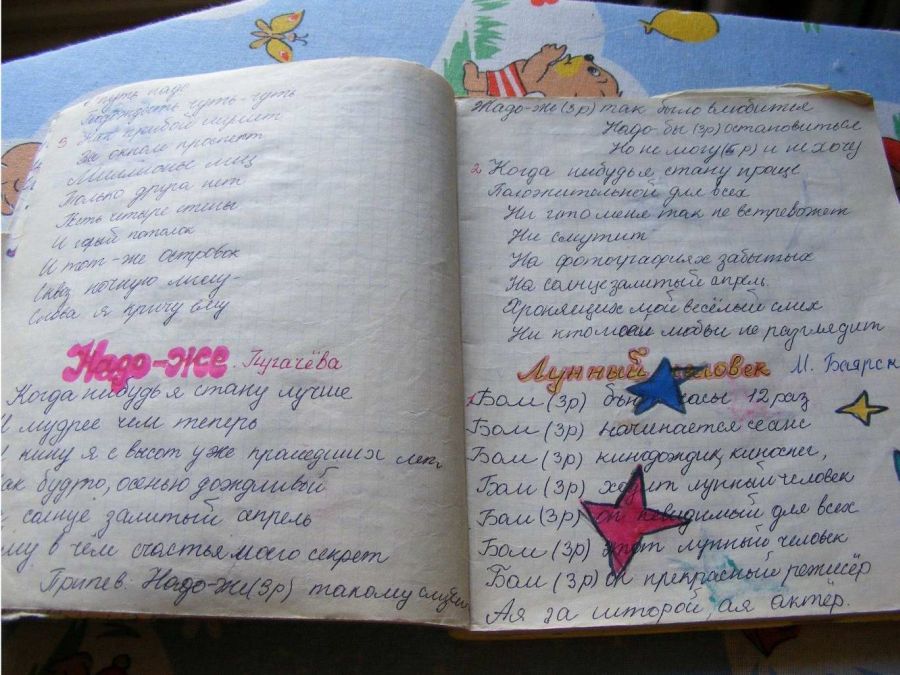 путь надо
Подождать чуть-чуть
3 Как прибой шумит
За окном проспект
Миллионы лиц
Только друга нет
Есть четыре стены
И седый потолок
И тот-же островок
Сквоз ночную мглу-
Снова я кричу ему
Надо-же Пугачёва
Когда нибудь я стану лучше
И мудрее чем теперь
кину я с высот уже прошедших лет
как будто, осенью дождливой
солнце залитый апрель
му в чём счастья моего секрет
Припев. Надо-же(3р) такому
Надо-же(3р) так было влюбится
Надо-бы(3р) остановиться
Но не могу( р) и не хочу
2 Когда нибудь я стану проще
Положительной для всех
Ни что меня так не встревожет
Ни смутит
На фотографиях забытых
На солнце залитый апрель
Хронящих мой весёлый смех
Ни кто моей любви не разглядит
Лунный человек М. Баярск
1 Бом (3р) бьют часы 12 раз
Бом (3р) начинается сеанс
Бом (3р) кинодождик, киноснег,
Бом (3р) ходит лунный человек
Бом (3р) он невидимый для всех
Бом (3р) этот лунный человек
Бом (3р) он прекрасный режисёр
А я за шторой, а я актёр.